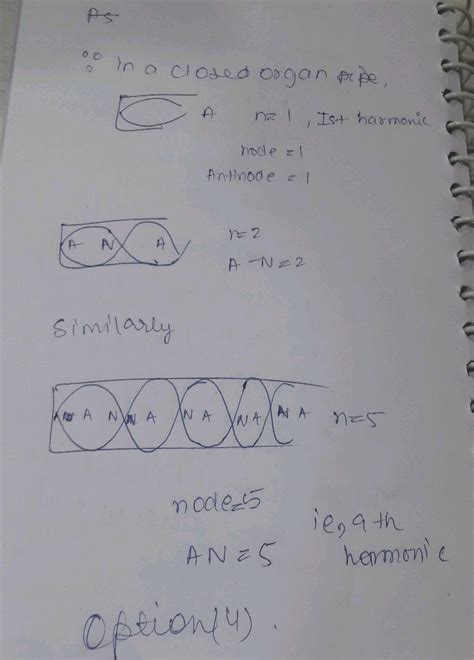 As
∵ In a closed organ pipe,
A n=1, Ist harmonic
node = 1
Antinode = 1
A N A n=2
A - N = 2
Similarly
A N N A N A N A N A n=5
node=5
AN = 5
ie, 9th harmonic
Option(4).